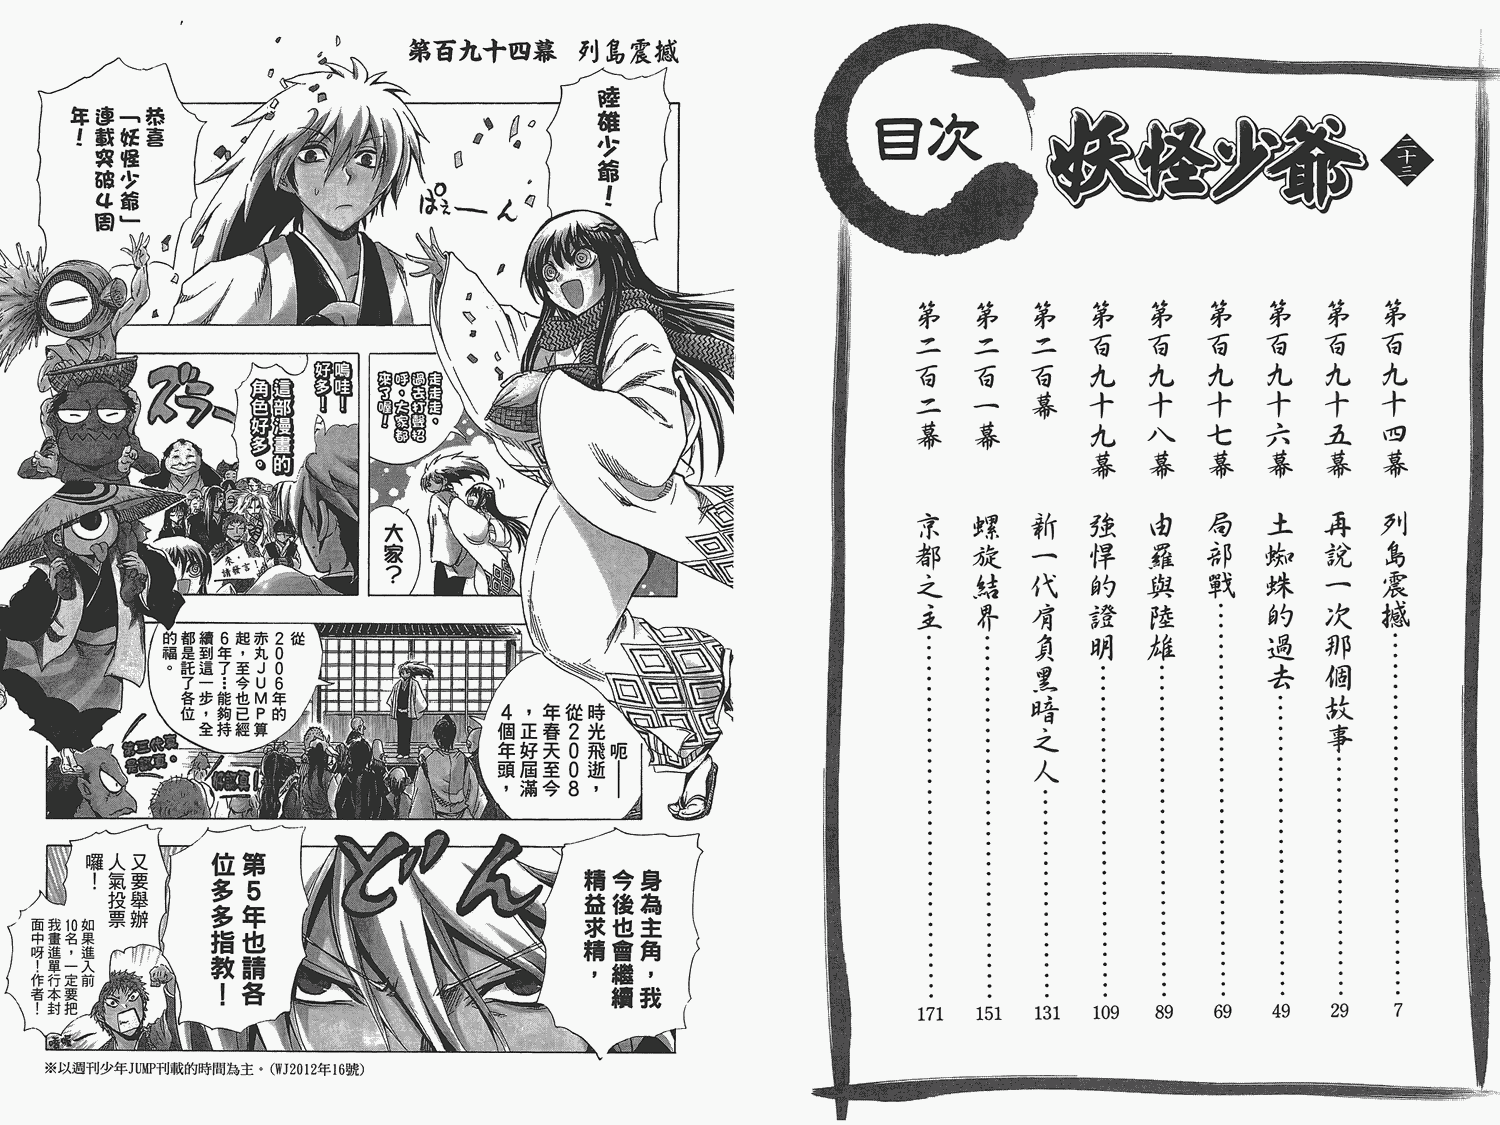 妖怪少爺
二十三
目次
第百九十四幕 列島震撼……7
第百九十五幕 再說一次那個故事……29
第百九十六幕 土蜘蛛的過去……49
第百九十七幕 局部戰……69
第百九十八幕 由羅與陸雄……89
第百九十九幕 強悍的證明……109
第二百幕 新一代肩負黑暗之人……131
第二百一幕 螺旋結界……151
第二百二幕 京都之主……171
第百九十四幕 列島震撼
陸雄少爺！
ぱぇーん
恭喜
「妖怪少爺」
連載突破４周
年！
走走走，
過去打聲招
呼，大家都
來了喔！
大家？
嗚哇！
好多！
這部漫畫的
角色好多。
ズラー
來
請發言！
呃——
時光飛逝，
從２００８
年春天至今
，正好屆滿
４個年頭，
從
２００６年的
赤丸ＪＵＭＰ算
起，至今也已經
６年了…能夠持
續到這一步，全
都是託了各位
的福。
身為主角，我
今後也會繼續
精益求精，
どん
第５年也請各
位多多指教！
又要舉辦
人氣投票
囉！
如果進入前
10名，一定要把
我畫進單行本封
面中呀！作者！
※以週刊少年JUMP刊載的時間為主。(WJ2012年16號)